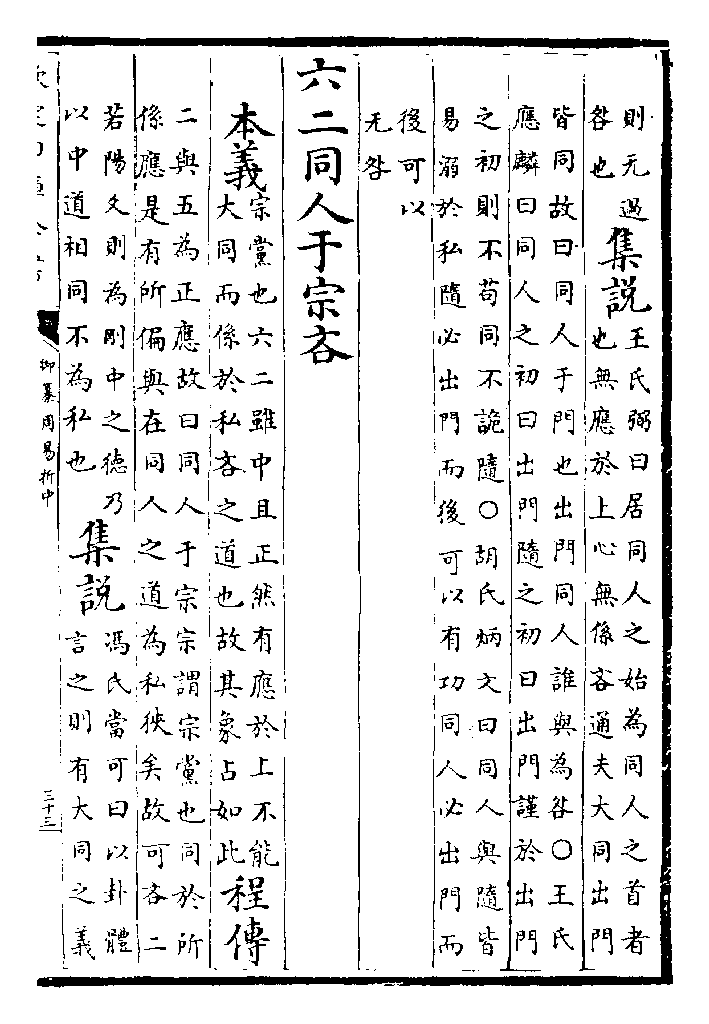 則无過
咎也
集說
王氏弼曰居同人之始為同人之首者
也無應於上心無係吝通夫大同出門
皆同故曰同人于門也出門同人誰與為咎○王氏
應麟曰同人之初曰出門隨之初曰出門謹於出門
之初則不苟同不詭隨○胡氏炳文曰同人與隨皆
易溺於私隨必出門而後可以有功同人必出門而
後可以
无咎
六二同人于宗吝
本義
宗黨也六二雖中且正然有應於上不能
大同而係於私吝之道也故其象占如此
程傳
二與五為正應故曰同人于宗宗謂宗黨也同於所
係應是有所偏與在同人之道為私狹矣故可吝二
若陽爻則為剛中之德乃
以中道相同不為私也
集說
馮氏當可曰以卦體
言之則有大同之義
御纂周易折中
三十三